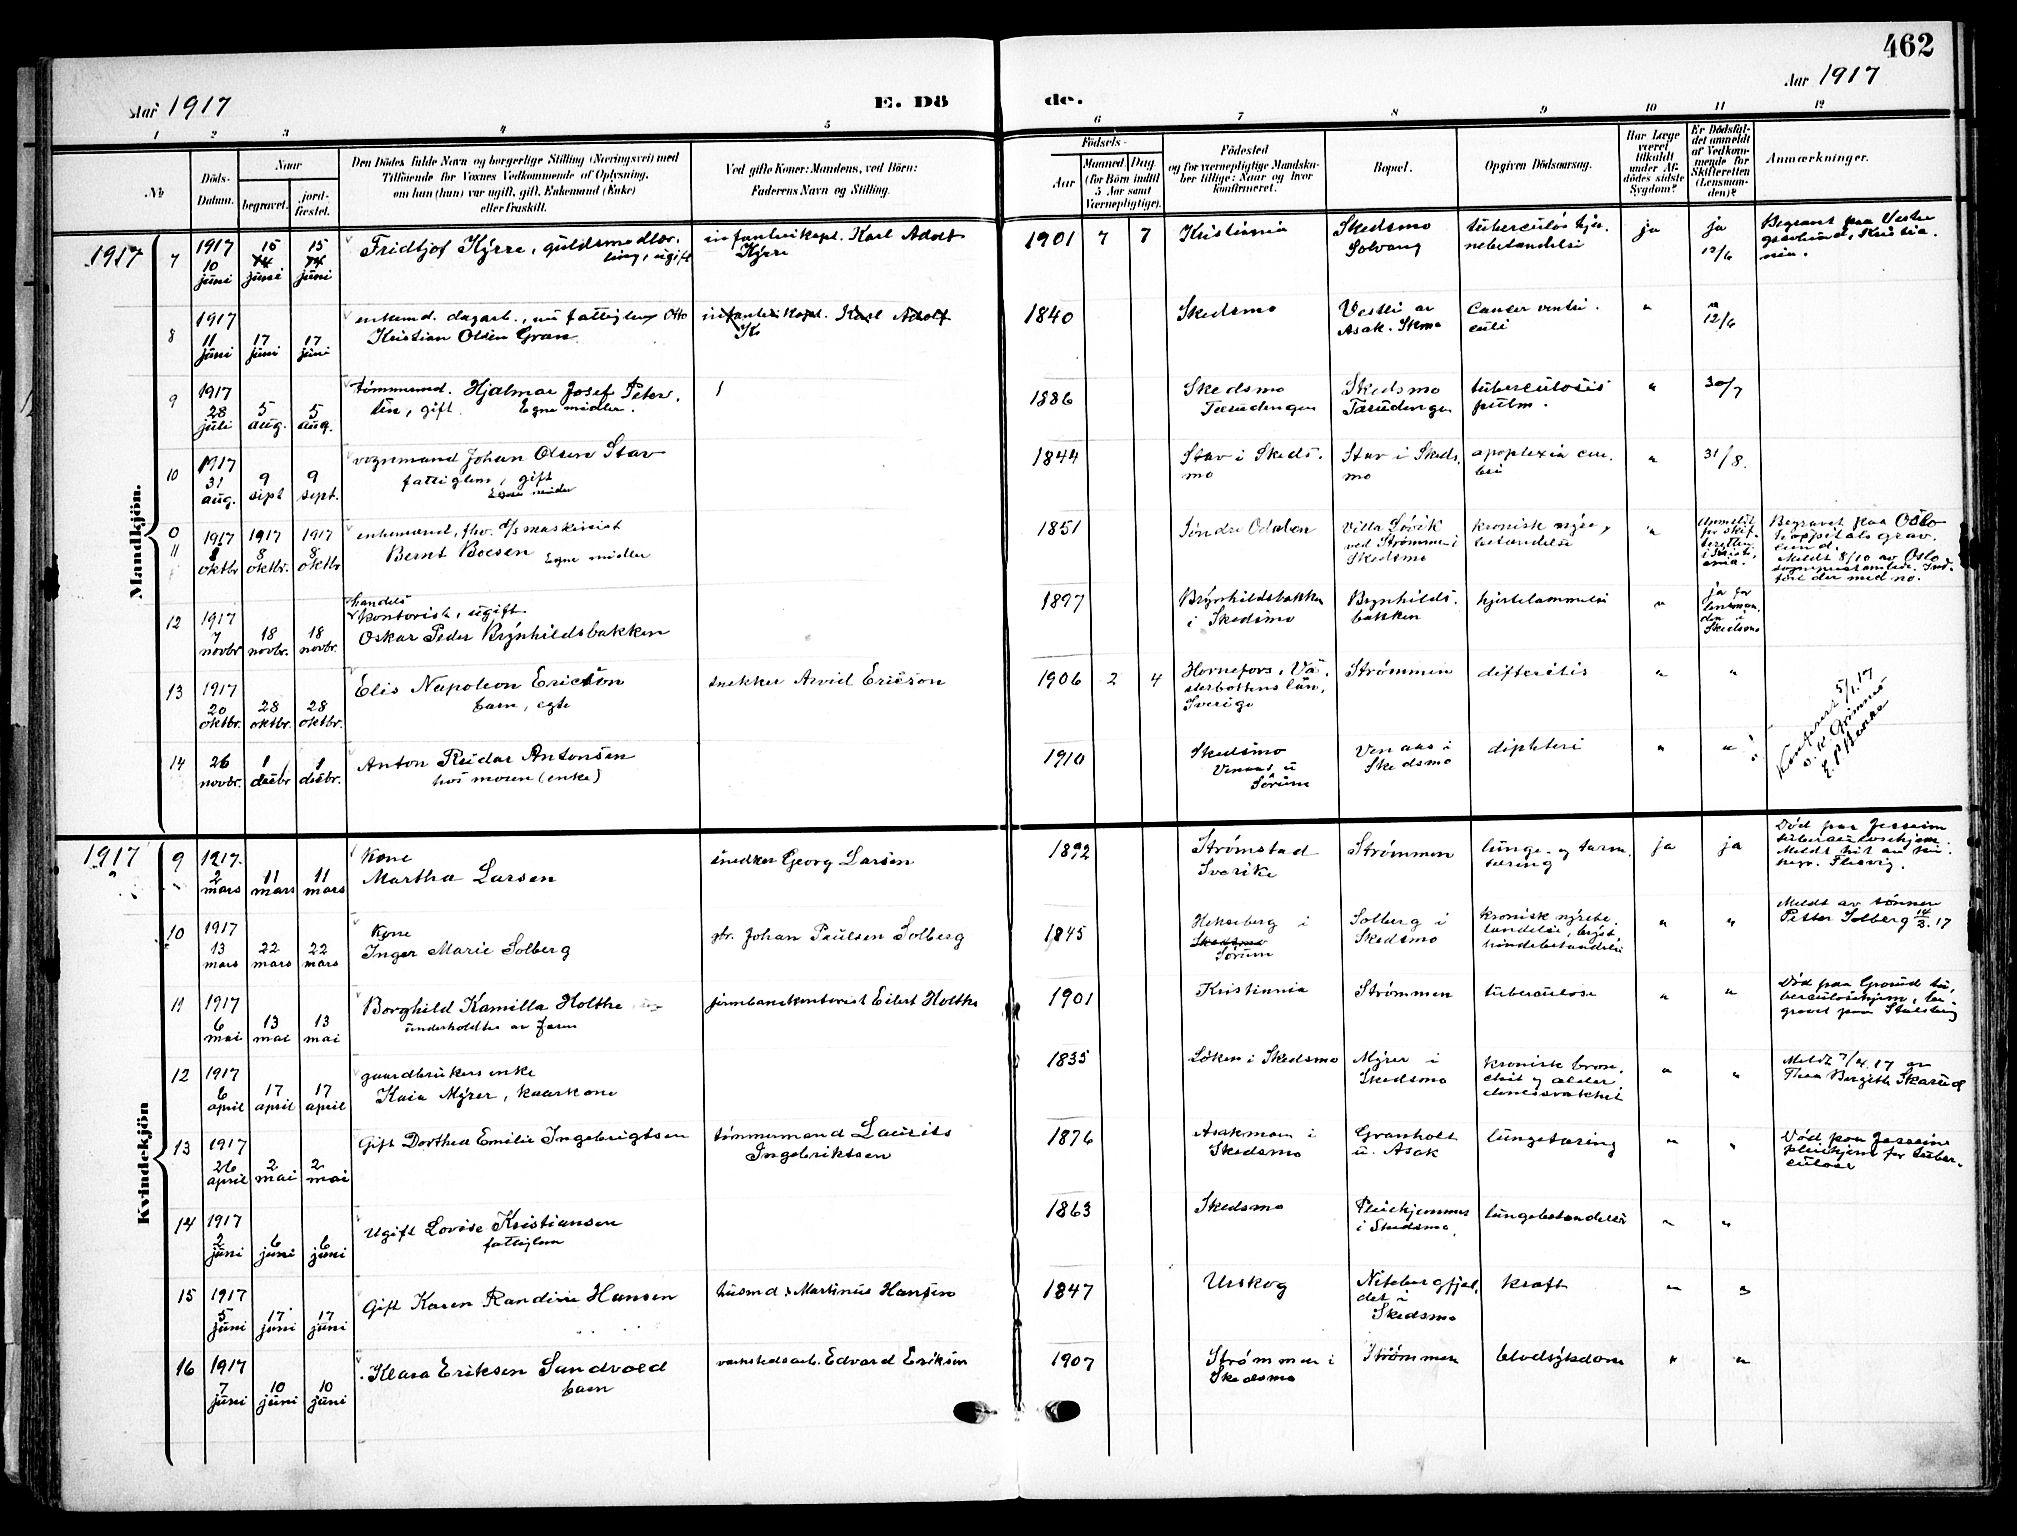 462
Aar 1917
E. Dö
de.
Aar 1917
1 2 3 4 5 6 7 8 9 10 11 12
No
Döds-
Datum.
Naar
begravet.
jord-
fæstet.
Den Dödes fulde Navn og borgerlige Stilling (Næringsvei) med
Tilföiende for Voxnes Vedkommende af Oplysning,
om han (hun) var ugift, gift, Enkemand (Enke)
eller fraskilt.
Ved gifte Koner: Mandens, ved Börn:
Faderens Navn og Stilling.
Födsels-
Aar
Maaned
Dag
(for Börn indtil
5 Aar samt
Værnepligtige).
Födested
og for værnepligtige Mandska-
ber tillige: Naar og hvor
konfirmeret.
Bopæl.
Opgiven Dödsaarsag.
Har Læge
været
tilkaldt
under Af-
dödes sidste
Sygdom?
Er Dödsfal-
det anmeldt
af Vedkom-
mende for
Skifteretten
(Lensman-
den)?
Anmærkninger.
Mandkjön.
1917
7
1917
10
juni
15
14
juni
15
14
juni
Fridtjof Kyrre, guldsmedlær-
ling, ugift
infanterikapt. Karl Adolf
Kyrre
1901
7
7
Kristiania
Skedsmo
Solvang
tuberculøs hjer-
nebetændelse
ja
ja
12/6
Begravet paa Vestre
gravlund, Kristia-
nia.
8
1917
11
juni
17
juni
17
juni
enkemd. dagarb., nu fattiglem Otto
Kristian Olsen Gran
infanterikapt. Karl Adolf
K
1840
Skedsmo
Vestli av
Asak. Skmo
Cancer ventri-
culi
"
"
12/6
9
1917
28
juli
5
aug.
5
aug.
tømmermd. Hjalmar Josef Peter-
sen, gift. Egne midler.
1886
Skedsmo
Tærudengen
Skedsmo
Tærudengen
tuberculosis
pulm.
"
30/7
10
1917
31
aug.
9
sept
9
sept.
vognmand Johan Olsen Stav
fattiglem, gift
Egne midler
1844
Stav i Skeds-
mo
Stav i Skeds-
mo
apoplexia cere-
bri
"
31/8.
0
11
1917
8
oktbr
1917
8
oktbr.
1917
8
oktbr
enkemand, fhv. d/s maskinist
Bernt Boesen Egne midler
1851
Søndre Odalen
Villa Søvik
ved Strømmen i
Skedsmo
kronisk nyre-
betændelse
"
Anmeldt
for skif-
teretten
i Kristi-
ania.
Begravet paa Oslo
hospitals grav-
lund.
Meldt 8/10 av Oslo
sogneprestembede. Ind-
ført der med no.
12
1917
7
novbr
18
novbr.
18
novbr.
handels
kontorist, ugift
Oskar Peder Brynhildsbakken
1897
Brynhildsbakken
i Skedsmo
Brynhilds-
bakken
hjertelammelse
"
ja for
lensman-
den i
Skedsmo
13
1917
20
oktbr.
28
oktbr.
28
oktbr.
Elis Napoleon Ericson
barn, egte
snekker Arvid Ericson
1906
2
4
Hornefors, Vä-
sterbottens län,
Sverige
Strømmen
difteritis
"
"
14
26
novbr.
1
decbr
1
decbr.
Anton Reidar Antonsen
hos moren (enke)
1910
Skedsmo
Venaas u
Sørum
Venaas i
Skedsmo
diphteri
"
"
Konferert 5/1.17
Kvindekjön
1917
9
1917.
2
mars
11
mars
11
mars
Kone
Martha Larsen
snedker Georg Larsen
1892
Strømstad
Sverike
Strømmen
lunge- og tarm-
tæring
ja
ja
Død paa Jessheim
tuberculosehjem.
Meldt hit av
Flesvig.
10
1917
13
mars
22
mars
22
mars
Kone
Inger Marie Solberg
gbr. Johan Paulsen Solberg
1845
Hekseberg i
Skedsmo
Sørum
Solberg i
Skedsmo
kronisk nyrebe-
tændelse, bryst-
hindebetændelse
"
"
Meldt av sønnen
Petter Solberg 14/3.17
11
1917
6
mai
13
mai
13
mai
Borghild Kamilla Holthe
underholdtes av faren
jernbanekontorist Eilert Holthe
1901
Kristiania
Strømmen
tuberculose
"
"
Død paa Grorud tu-
berculosehjem, be-
gravet paa Stalsberg
12
1917
6
april
17
april
17
april
gaardbrukers enke
Kaia Myrer, kaarkone
1835
Løken i Skedsmo
Myrer i
Skedsmo
kronisk bron-
chit og alder-
domssvakhet
"
"
Meldt 7/4.17 av
Thea Bergithe Skarud
13
1917
26
april
2
mai
2
mai
Gift Dorthea Emilie Ingebrigtsen
tømmermand Laurits
Ingebriktsen
1876
Asakmoen i
Skedsmo
Granholt
u. Asak
lungetæring
"
"
Død paa Jessheim
pleiehjem for tuber-
culose
14
1917
2
juni
6
juni
6
juni
Ugift Lovise Kristiansen
fattiglem
1863
Skedsmo
Pleiehjemmet
i Skedsmo.
lungebetændelse
"
"
15
1917
5
juni
17
juni
17
juni
Gift Karen Randine Hansen
husmd. Martinus Hansen
1847
Urskog
Nitebergfjel-
det i
Skedsmo
kræft
"
"
16
1917
7
juni
10
juni
10
juni
Klara Eriksen Sandvold
barn
verkstedsarb. Edvard Eriksen
1907
Strømmen i
Skedsmo
Strømmen
blodsykdom
"
"